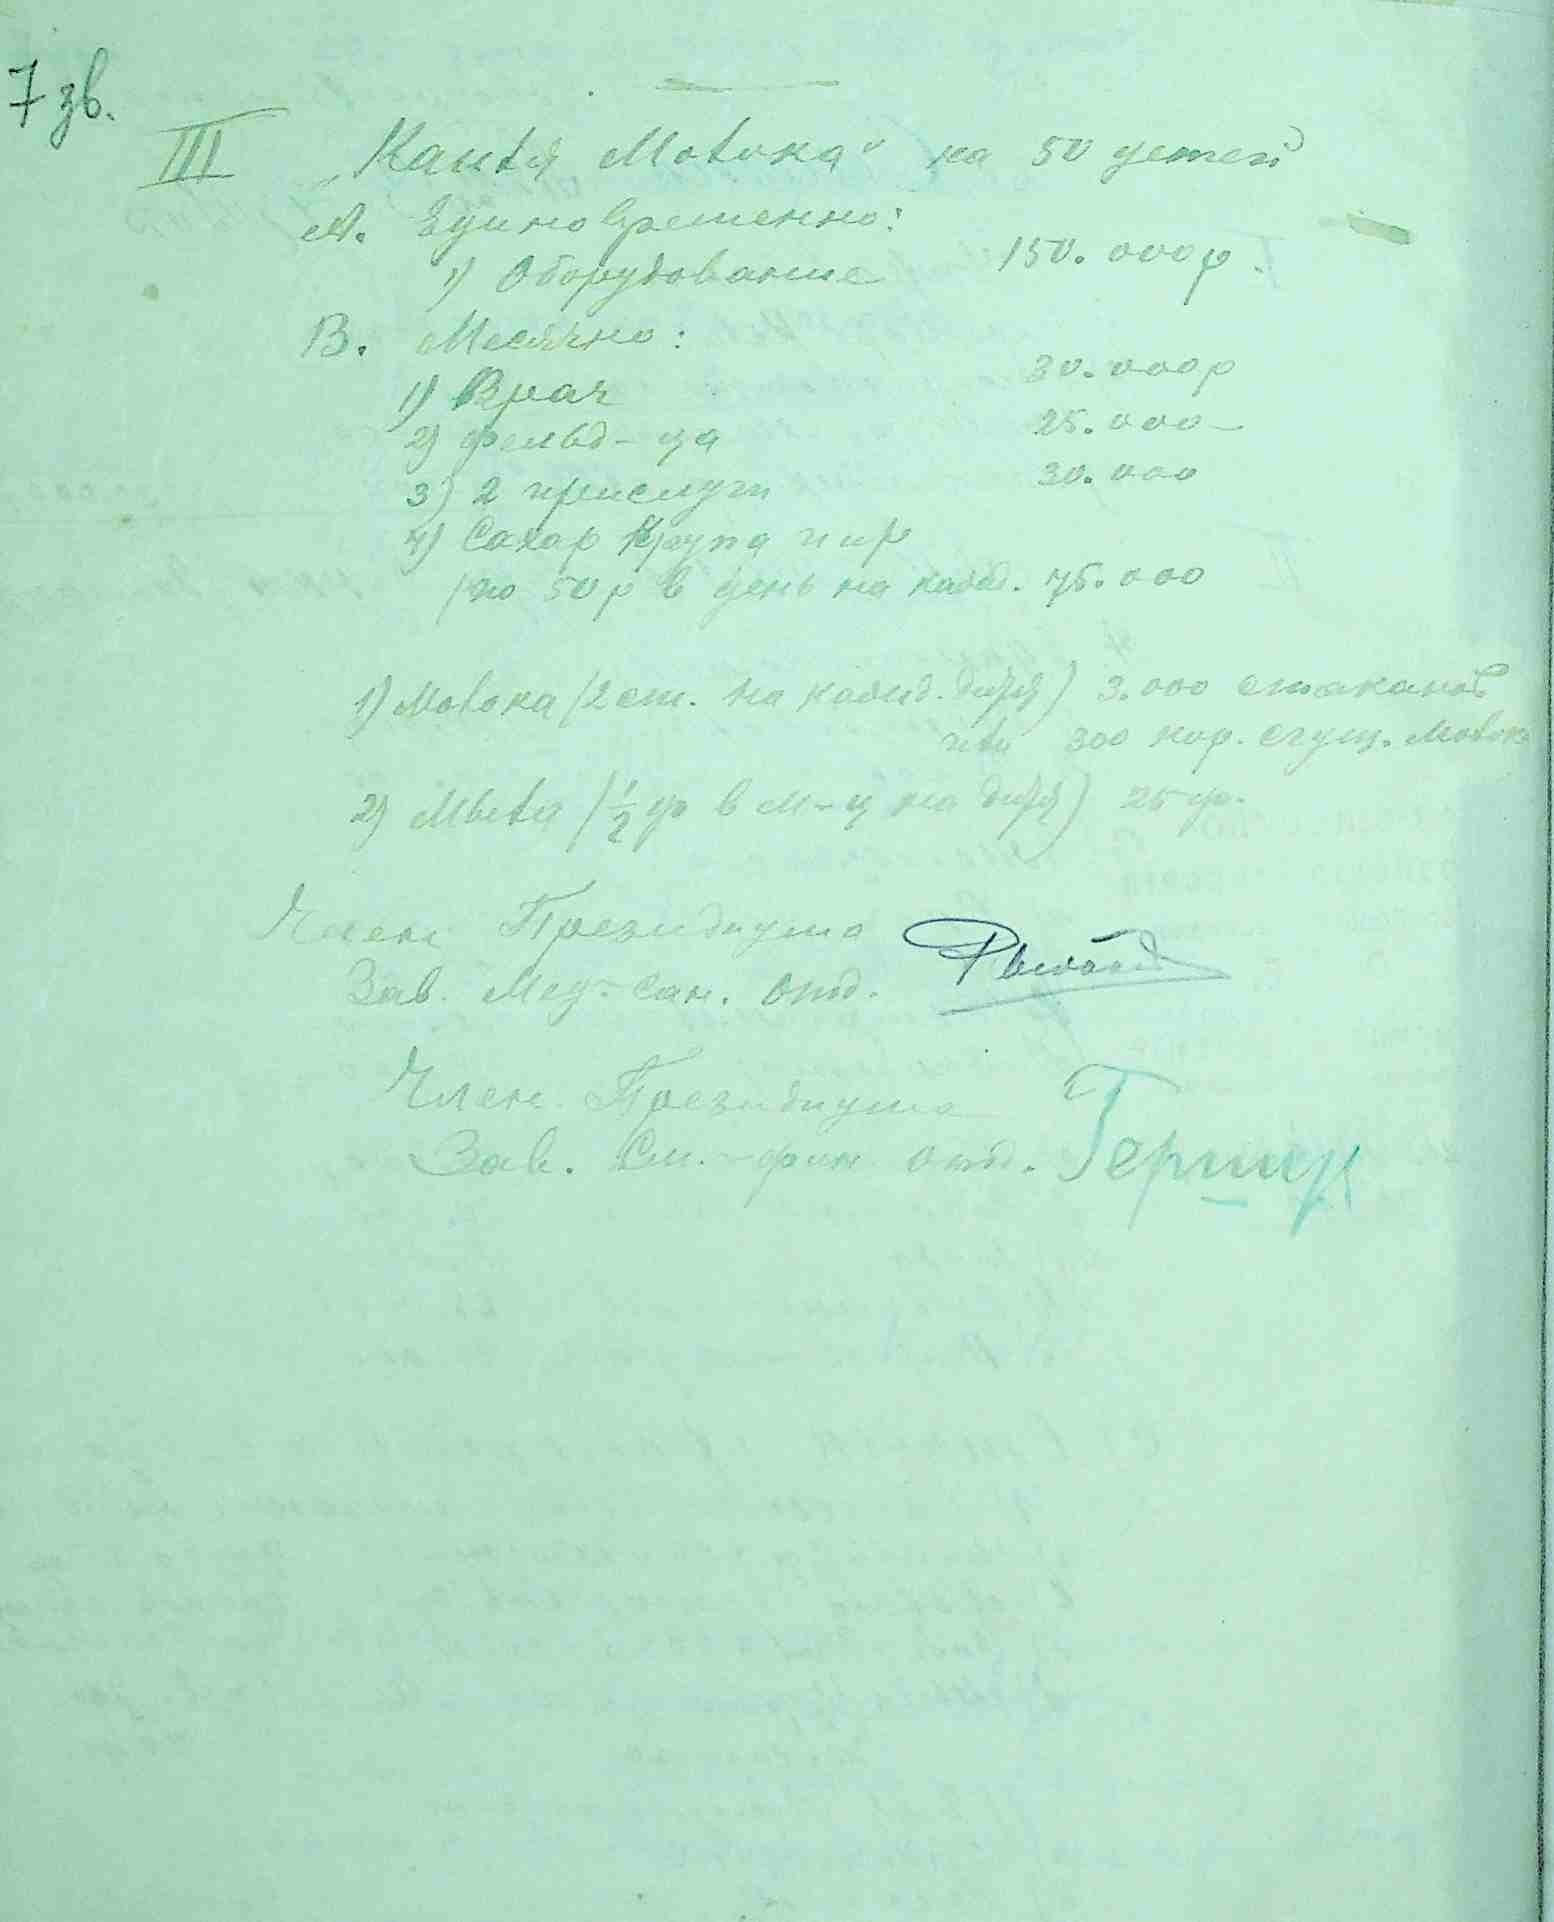 7 зв.
III „Капля Молока" на 50 детей
А. Единовременно:
1) Оборудование 150.000 р.
В. Месячно:
1) Врач 30.000 р
2) Фельд-ца 25.000 –
3) 2 прислуги 30.000
4) Сахар Крупа и пр
(по 50 р в день на кажд. 75.000
1) Молока (2 ст. на кажд. дитя) 3.000 стаканов
или 300 кор. сгущ. Молока
2) Мыла (1/2 ф в м-ц на дитя) 25 ф.
Член Президиума
Зав. Мед-сан. Отд.
Член Президиума
Зав. См.-фин отд.